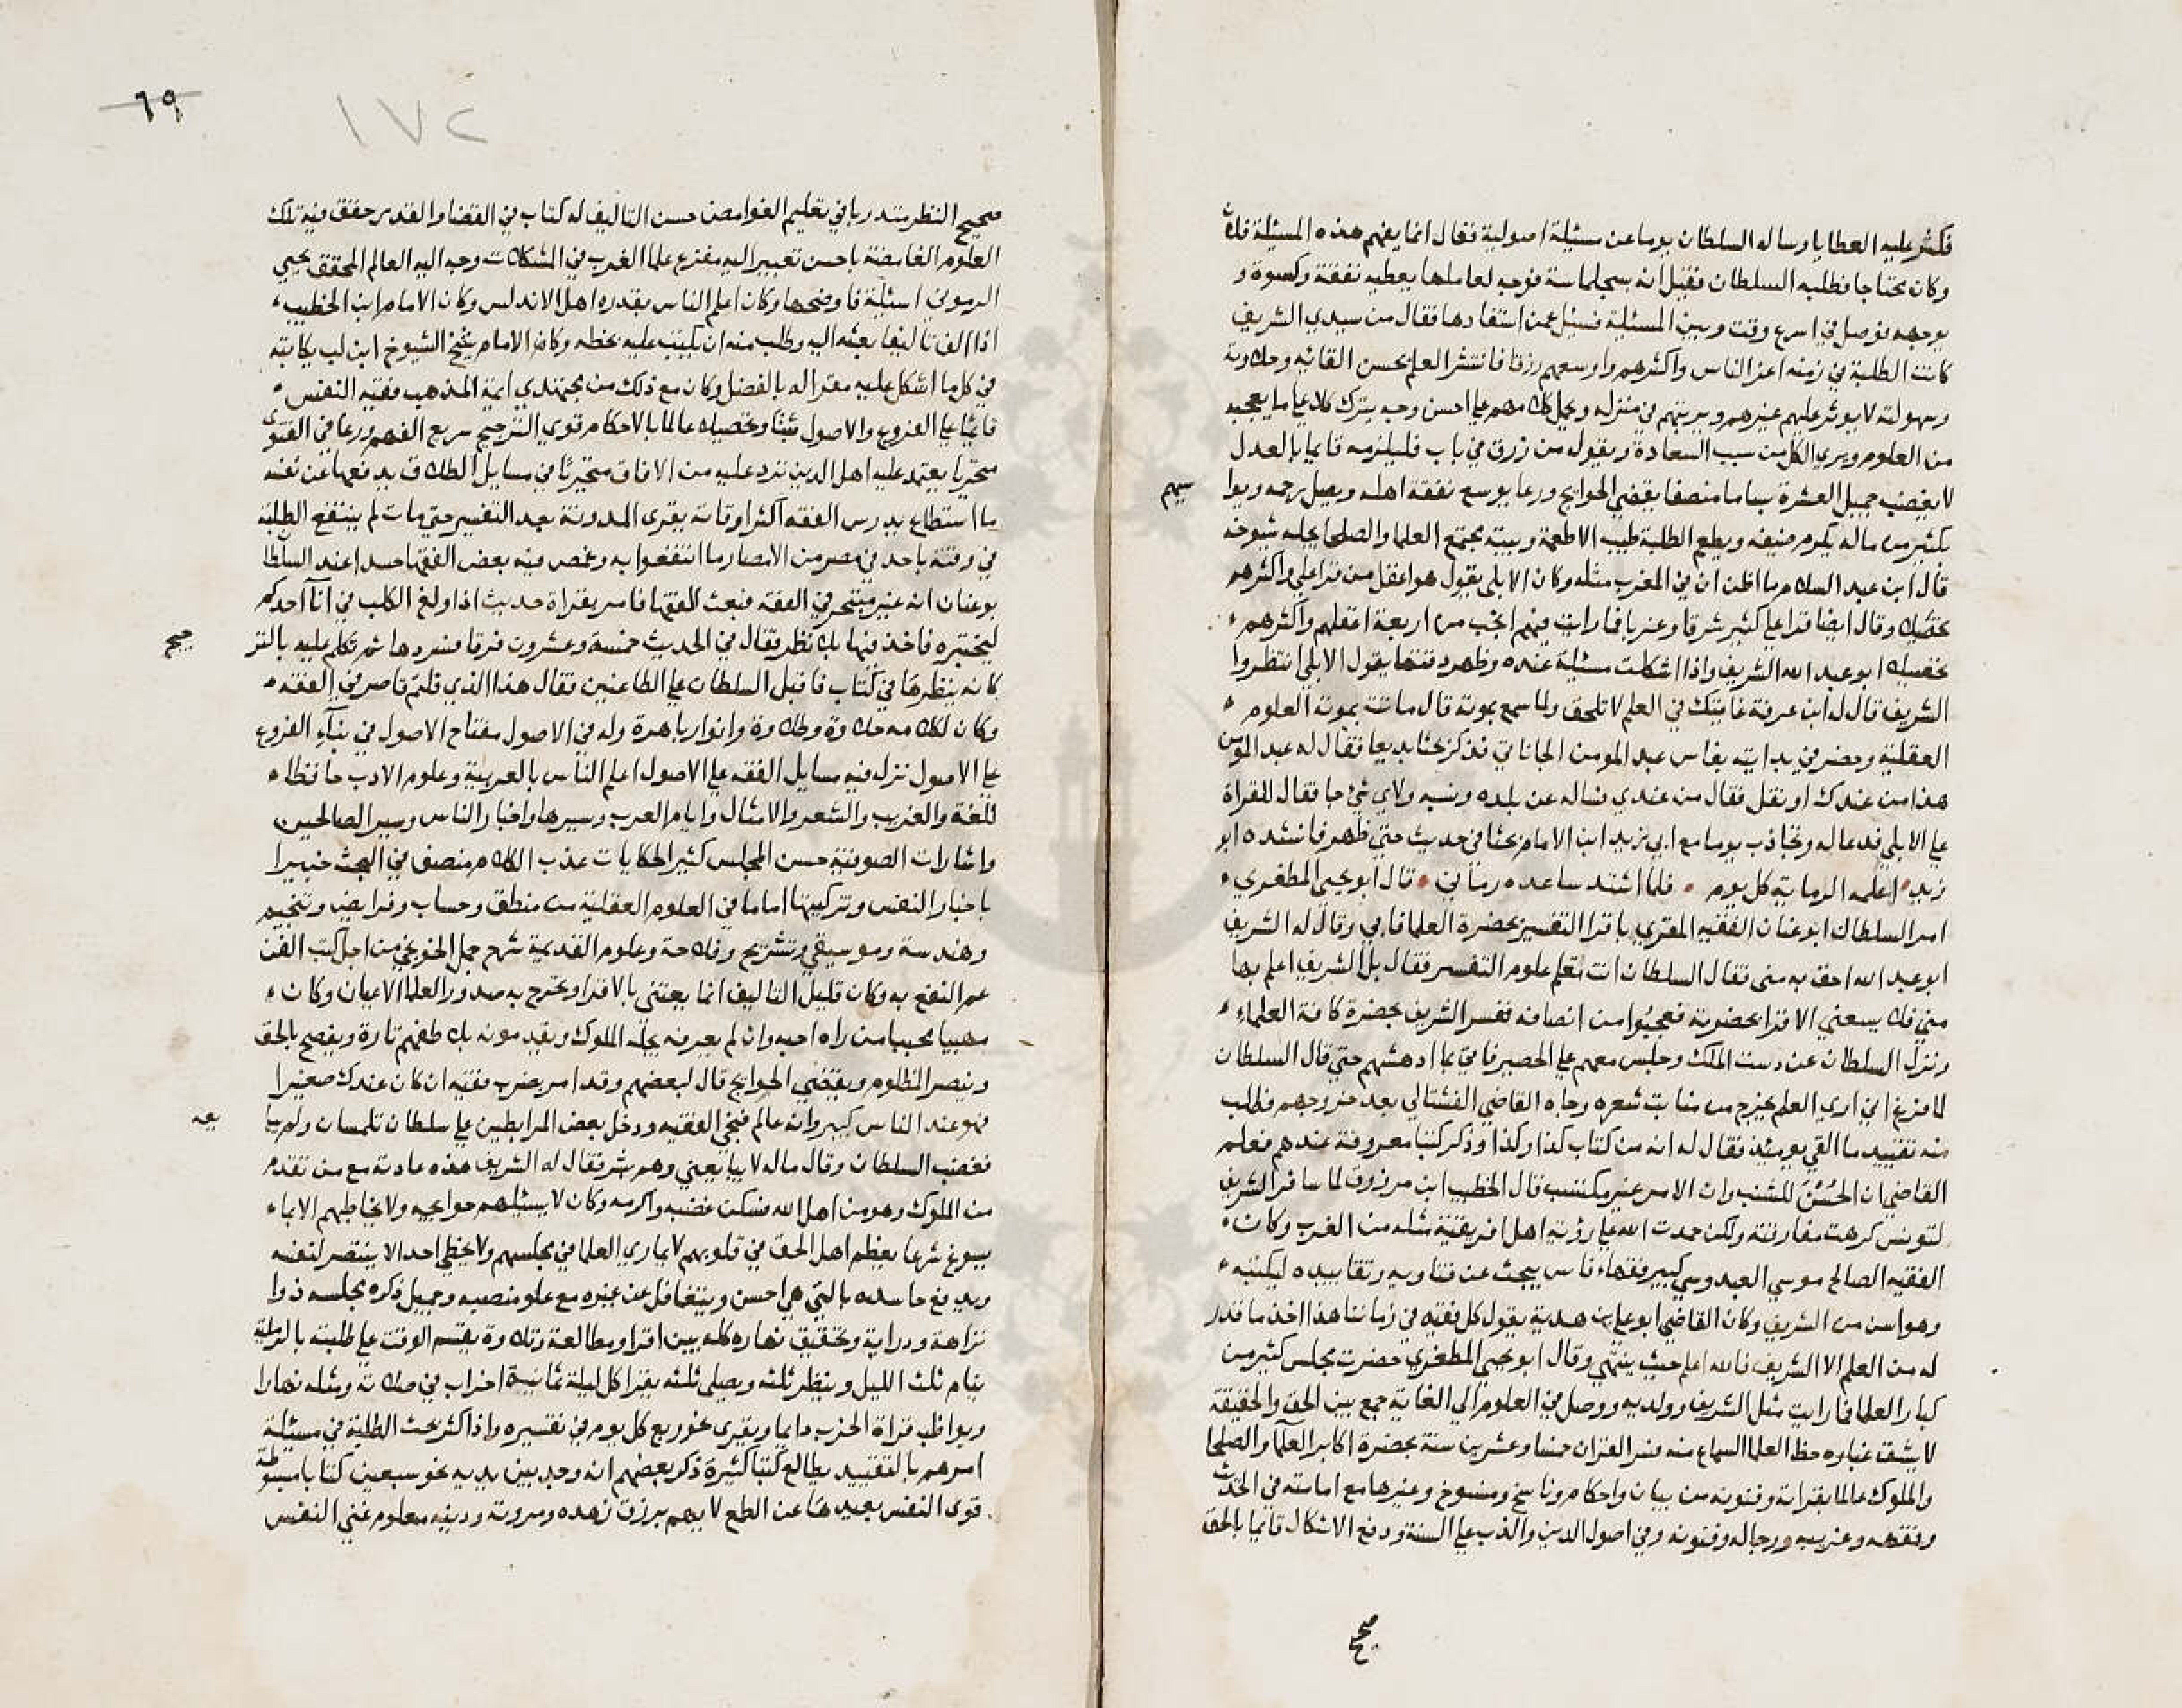 فكثر عليه العطايا وساله السلطان يوما عن مسئلة اصولية فقال انما يفهم هذه المسئلة فلان
وكان محتاجا فطلبه السلطان فقيل انه بسجلماسة فوجه لعاملها يعطيه نفقة وكسوة و
يوجهه فوصل في اسرع وقت وبين المسئلة فسئل عمن استفادها فقال من سيدي الشريف
كانت الطلبة في زمنه اعز الناس واكثرهم واوسعهم رزقا فانتشر العلم بحسن القائه وحلاوته
وسهولته لا يوثر عليهم غيرهم ويربيهم في منزله ويحمل كلامهم علي احسن وجه يترك كلا علي ما يعجبه
من العلوم ويري الكل من سبب السعادة ويقول من رزق في باب فليلزمه قايما بالعدل
لا يغضب جميل العشرة بساما منصفا يقضي الحوايج ورعا يوسع نفقة اهله ويصل رحمه ويوا
سيهم
بكثير من ماله يكرم ضيفه ويطعم الطلبة طيب الاطعمة وبيته مجتمع العلما والصلحا يجله شيوخه
قال ابن عبد السلام ما اظن ان في المغرب مثله وكان الابلي يقول هو اعقل من قرا علي واكثرهم
تحصيلا وقال ايضا قرا علي كثير شرقا وغربا فما رايت فيهم انجب من اربعة اعقلهم واكثرهم
تحصيلا ابو عبد الله الشريف واذا اشكلت مسئلة عنده وظهر دقتها يقول الابلي انتظروا
الشريف قال له ابن عرفة غايتك في العلم لا تلحق ولما سمع بموته قال ماتت بموته العلوم
العقلية وحضر في بدايته بفاس عبد المومن الجاناتي فذكر بحثا بديعا فقال له عبد المومن
هذا من عندك او نقل فقال من عندي فساله عن بلده ونسبه ولاي شيء جا فقال للقراة
علي الابلي فدعا له وتجاذب يوما مع ابي زيد ابن الامام بحثا في حديث حتي ظهر فانشده ابو
زيد اعلمه الرماية كل يوم فلما اشتد ساعده رماني قال ابو يحيى المطغري
امر السلطان ابو عنان الفقيه المقري باقرا التفسير بحضرة العلما فابي وقال له الشريف
ابو عبد الله احق به مني فقال السلطان انت تعلم علوم التفسير فقال بل الشريف اعلم بها
مني فلا يسعني الاقرا بحضرته فعجبوا من انصافه ففسر الشريف بحضرة كافة العلماء
ونزل السلطان عن دست الملك وجلس معهم علي الحصير فاتي بما ادهشهم حتي قال السلطان
لما فرغ اني اري العلم يخرج من منابت شعره وجاه القاضي الفشتالي بعد خروجهم فطلب
منه تقييد ما القي يومئذ فقال له انه من كتاب كذا وكذا وذكر كتبا معروفة عندهم فعلم
القاضي ان الحسن للشنب وان الامر غير مكتسب قال الخطيب ابن مرزوق لما سافر الشريف
لتونس كرهت مفارقته ولكن حمدت الله علي رؤية اهل افريقية مثله من الغرب وكان
الفقيه الصالح موسي العبدوسي كبير فقهاء فاس يبحث عن فتاويه وتقاييده ليكتبه
وهو اسن من الشريف وكان القاضي ابو علي بن هدية يقول كل فقيه في زماننا هذا اخذ ما قدر
له من العلم الا الشريف فالله اعلم حيث ينتهي وقال ابو يحيى المطغري حضرت مجلس كثير من
كبار العلما فما رايت مثل الشريف وولديه ووصل في العلوم الي الغاية جمع بين الحق والحقيقة
لا يشق غباره حظ العلما السماع منه فسر القران خمسا وعشرين سنة بحضرة اكابر العلما والصلحا
والملوك عالما بقراته وفنونه من بيان واحكام وناسخ ومنسوخ وغيرها مع امامته في الحديث
وفقهه وغريبه ورجاله وفنونه وفي اصول الدين والذب علي السنة ودفع الاشكال قايما بالحق
صح
٦٩
١٧٢
صحيح النظر متدربا في تعليم الغوامض حسن التاليف له كتاب في القضا والقدر حقق فيه تلك
العلوم الغامضة باحسن تعبير اليه مفزع علما الغرب في المشكلات وجه اليه العالم المحقق يحيي
الرهوني اسئلة فاوضحها وكان اعلم الناس بقدره اهل الاندلس وكان الامام ابن الخطيب
اذا الف تاليفا بعثه اليه وطلب منه ان يكتب عليه بخطه وكان الامام شيخ الشيوخ ابن لب يكاتبه
في كل ما اشكل عليه مقرا له بالفضل وكان مع ذلك من مجتهدي ايمة المذهب فقيه النفس
قايما علي الفروع والاصول ثبتا وتحصيلا عالما بالاحكام قوي الترجيح سريع الفهم ورعا في الفتوى
متحريا يعتمد عليه اهل الدين ترد عليه من الافاق متحريا في مسايل الطلاق يدفعها عن نفسه
ما استطاع يدرس الفقه اكثر اوقاته يقري المدونة بعد التفسير حتي مات لم ينتفع الطلبة
في وقته باحد في مصر من الامصار ما انتفعوا به وغمص فيه بعض الفقها حسدا عند السلطا
بو عنان انه غير متبحر في الفقه فبعث للفقها فامر بقراة حديث اذا ولغ الكلب في انآ احدكم
ليختبره فاخذ فيها بلا نظر فقال في الحديث خمسة وعشرون فرقا فسردها ثم تكلم عليه بالتر
صح
كانه ينظرها في كتاب فاقبل السلطان علي الطاعنين فقال هذا الذي قلتم قاصر في الفقه
وكان لكلامه حلاوة وطلاوة وانوار باهرة وله في الاصول مفتاح الاصول في بنآء الفروع
علي الاصول نزل فيه مسايل الفقه علي الاصول اعلم الناس بالعربية وعلوم الادب حافظا
للغة والغريب والشعر والامثال وايام العرب وسيرها واخبار الناس وسير الصالحين
واشارات الصوفية حسن المجلس كثير الحكايات عذب الكلام منصف في البحث خبيرا
باخبار النفس وتزكيتها اماما في العلوم العقلية من منطق وحساب وفرايض وتنجيم
وهندسة وموسيقي وتشريح وفلاحة وعلوم القديمة شرح جمل الخونجي من اجل كتب الفن
عم النفع به وكان قليل التاليف انما يعتني بالاقرا وتخرج به صدور العلما الاعيان وكان
مهيبا محببا من راه احبه وان لم يعرفه يجله الملوك ويقدمونه يلاطفهم تارة ويفصح بالحق
وينصر المظلوم ويقضي الحوايج قال لبعضهم وقد امر بضرب فقيه ان كان عندك صغيرا
فهو عند الناس كبير وانه عالم فنجي الفقيه ودخل بعض المرابطين علي سلطان تلمسان ولم يبا
يعه
فغضب السلطان وقال ماله لا يبايعني وهم بشر فقال له الشريف هذه عادته مع من تقدم
من الملوك وهو من اهل الله فسكن غضبه واكرمه وكان لا يسئلهم حوايجه ولا يخاطبهم الا بما
يسوغ شرعا يعظم اهل الحق في قلوبهم لا يماري العلما في مجلسهم ولا يخطي احدا لا ينتصر لنفسه
ويدفع حاسده بالتي هي احسن ويتغافل عن غيره مع علو منصبه وجميل ذكره مجلسه ذوا
نزاهة ودراية وتحقيق نهاره كله بين اقرا ومطالعة وتلاوة يقسم الوقت علي طلبته بالرملية
ينام ثلث الليل وينظر ثلثه ويصلي ثلثه يقرا كل ليلة ثمانية احزاب في صلاته ومثله نهارا
ويواظب قراة الحزب دايما ويقري نحو ربع كل يوم في تفسيره واذا كثر بحث الطلبة في مسئلة
امرهم بالتقييد يطالع كتبا كثيرة ذكر بعضهم انه وجد بين يديه نحو سبعين كتابا مبسوطة
قوى النفس بعيدها عن الطمع لا يهم برزق زهده ومروته ودينه معلوم غني النفس